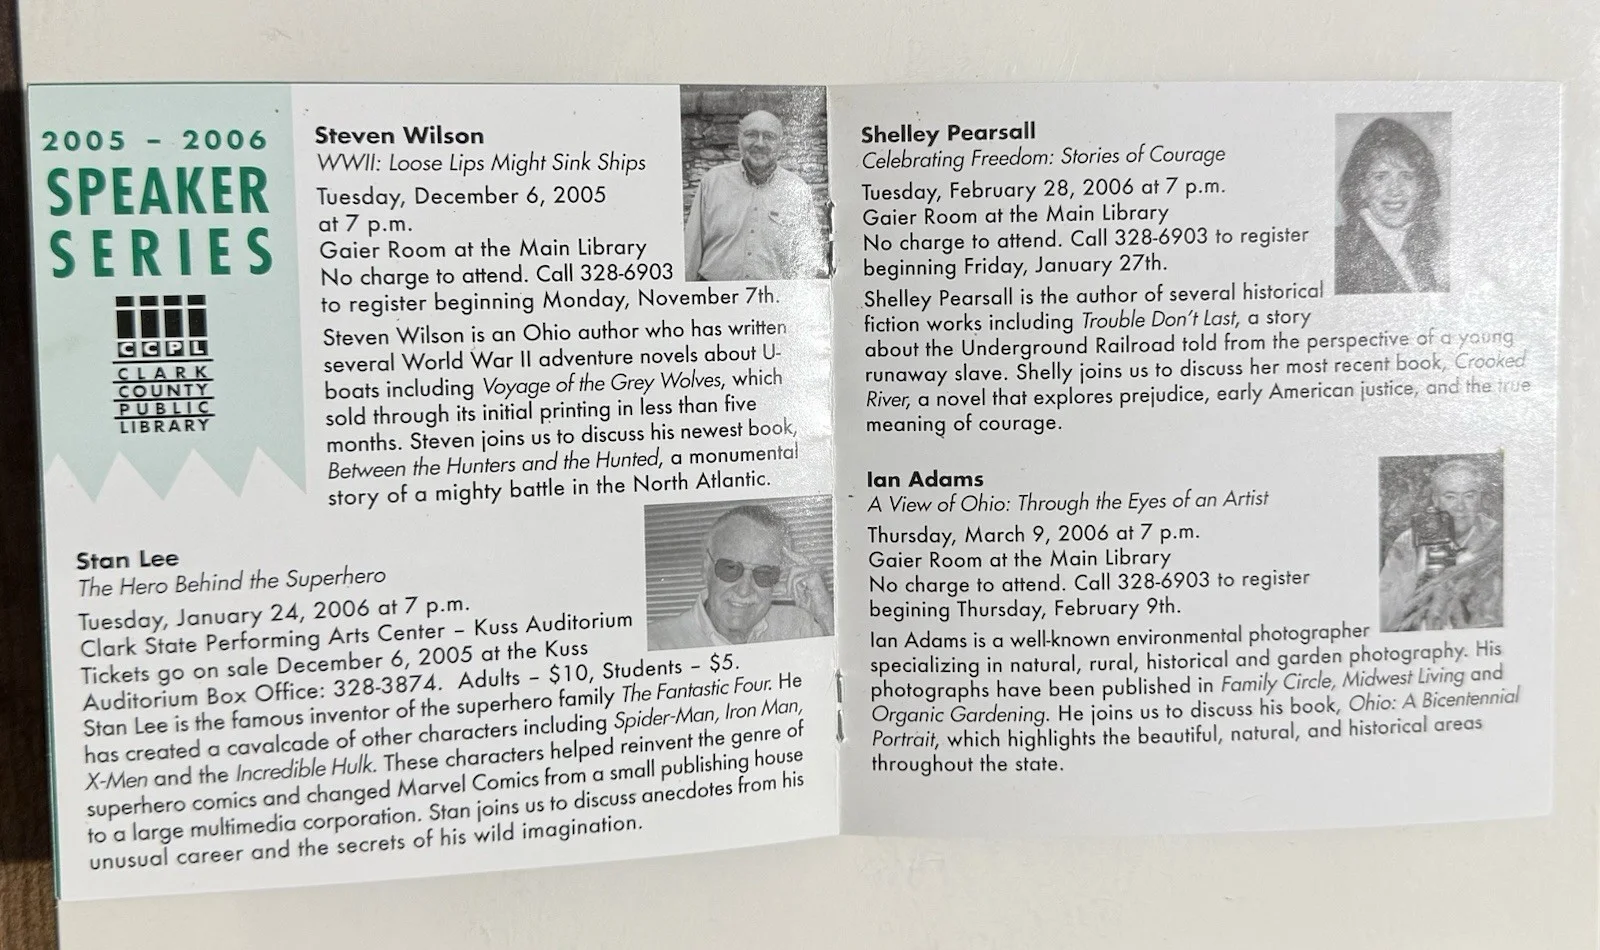 2005 – 2006
SPEAKER
SERIES
CCPL
CLARK
COUNTY
PUBLIC
LIBRARY
Steven Wilson
WWII: Loose Lips Might Sink Ships
Tuesday, December 6, 2005
at 7 p.m.
Gaier Room at the Main Library
No charge to attend. Call 328-6903
to register beginning Monday, November 7th.
Steven Wilson is an Ohio author who has written
several World War II adventure novels about U-
boats including Voyage of the Grey Wolves, which
sold through its initial printing in less than five
months. Steven joins us to discuss his newest book,
Between the Hunters and the Hunted, a monumental
story of a mighty battle in the North Atlantic.
Stan Lee
The Hero Behind the Superhero
Tuesday, January 24, 2006 at 7 p.m.
Clark State Performing Arts Center – Kuss Auditorium
Tickets go on sale December 6, 2005 at the Kuss
Auditorium Box Office: 328-3874. Adults – $10, Students – $5.
Stan Lee is the famous inventor of the superhero family The Fantastic Four. He
has created a cavalcade of other characters including Spider-Man, Iron Man,
X-Men and the Incredible Hulk. These characters helped reinvent the genre of
superhero comics and changed Marvel Comics from a small publishing house
to a large multimedia corporation. Stan joins us to discuss anecdotes from his
unusual career and the secrets of his wild imagination.
Shelley Pearsall
Celebrating Freedom: Stories of Courage
Tuesday, February 28, 2006 at 7 p.m.
Gaier Room at the Main Library
No charge to attend. Call 328-6903 to register
beginning Friday, January 27th.
Shelley Pearsall is the author of several historical
fiction works including Trouble Don't Last, a story
about the Underground Railroad told from the perspective of a young
runaway slave. Shelly joins us to discuss her most recent book, Crooked
River, a novel that explores prejudice, early American justice, and the true
meaning of courage.
Ian Adams
A View of Ohio: Through the Eyes of an Artist
Thursday, March 9, 2006 at 7 p.m.
Gaier Room at the Main Library
No charge to attend. Call 328-6903 to register
begining Thursday, February 9th.
Ian Adams is a well-known environmental photographer
specializing in natural, rural, historical and garden photography. His
photographs have been published in Family Circle, Midwest Living and
Organic Gardening. He joins us to discuss his book, Ohio: A Bicentennial
Portrait, which highlights the beautiful, natural, and historical areas
throughout the state.